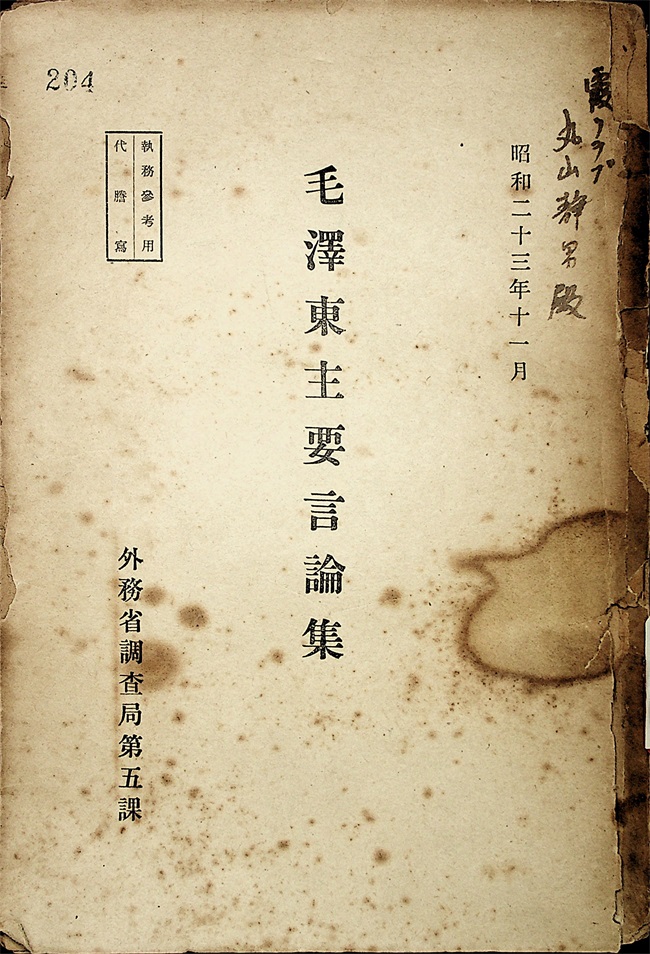 霞クラブ
丸山静男殿
昭和二十三年十一月
毛澤東主要言論集
204
執務參考用
代謄寫
外務省調查局第五課